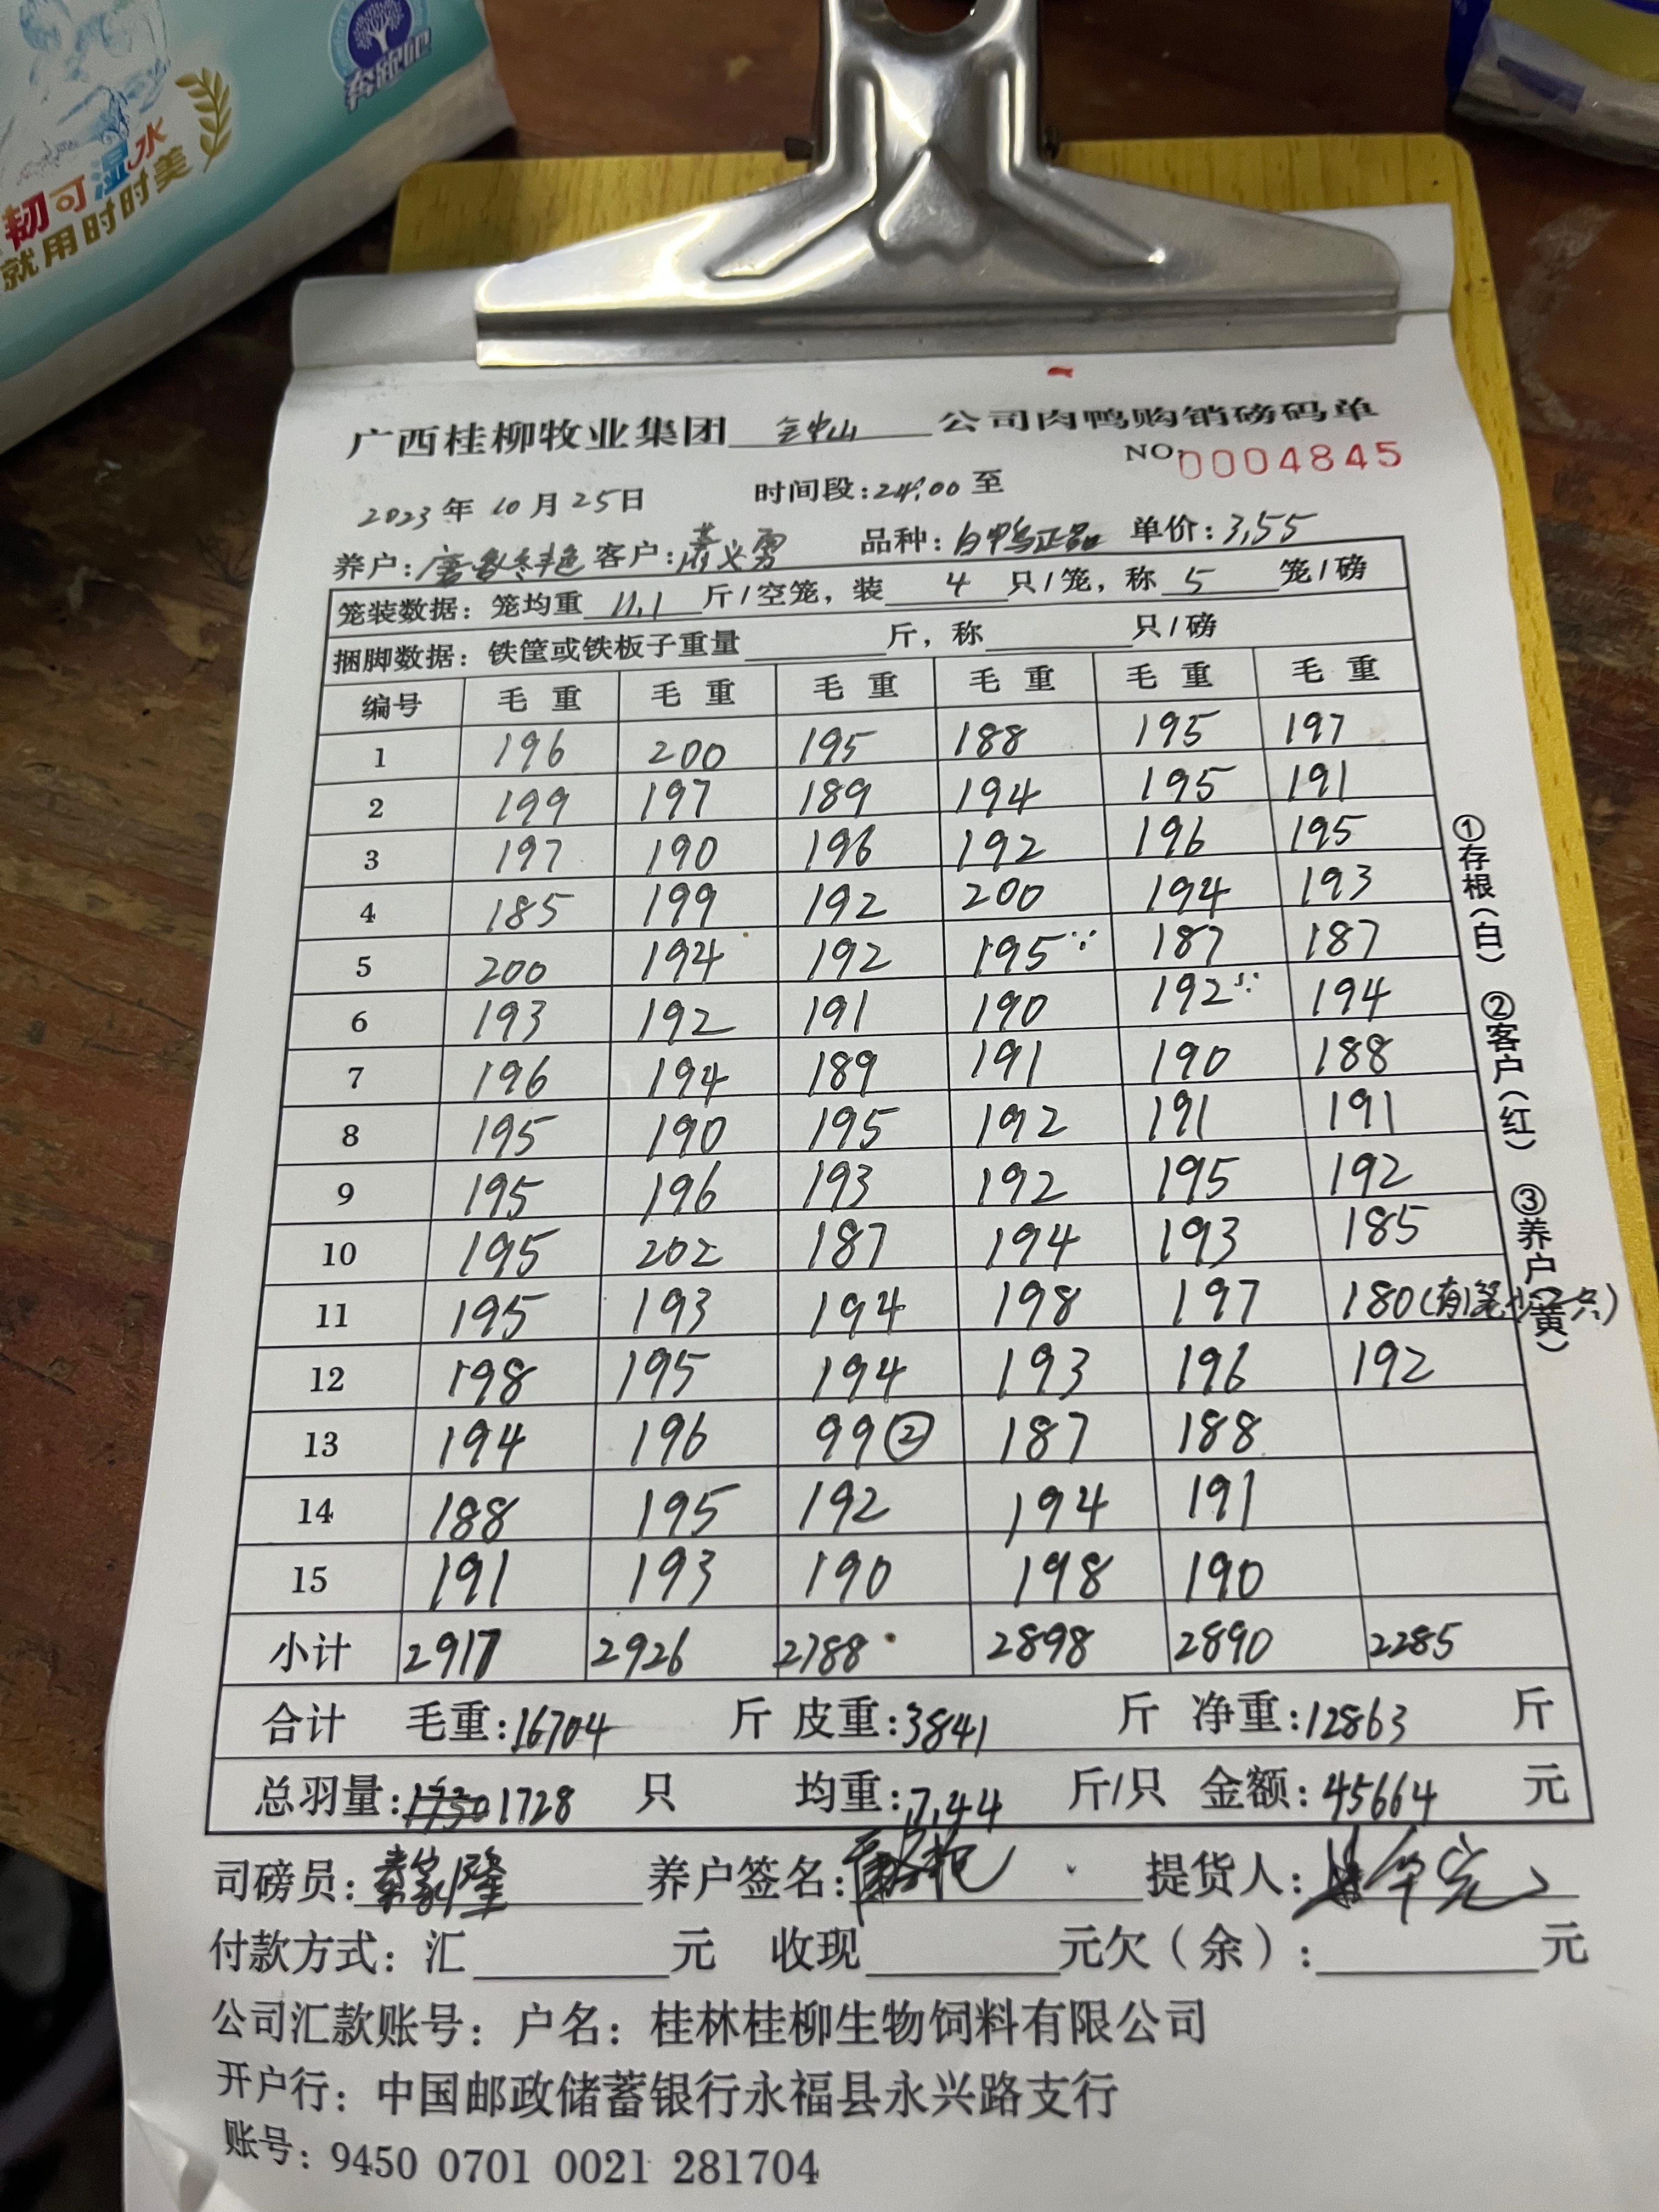 奔跑吧
韧可湿水
就用时时美
广西桂柳牧业集团 全中山 公司肉鸭购销磅码单
NO: 0004845
2023年 10月 25日 时间段: 24:00 至
养户: 客户: 品种: 白鸭正品 单价: 3,55
笼装数据: 笼均重 11.1 斤/空笼, 装 4 只/笼, 称 5 笼/磅
捆脚数据: 铁筐或铁板子重量 斤, 称 只/磅
编号 毛重 毛重 毛重 毛重 毛重 毛重
1 196 200 195 188 195 197
2 199 197 189 194 195 191
3 197 190 196 192 196 195
4 185 199 192 200 194 193
5 200 194 192 195 187 187
6 193 192 191 190 192 194
7 196 194 189 191 190 188
8 195 190 195 192 191 191
9 195 196 193 192 195 192
10 195 202 187 194 193 185
11 195 193 194 198 197 180(有1笼少2只)
12 198 195 194 193 196 192
13 194 196 99② 187 188
14 188 195 192 194 191
15 191 193 190 198 190
小计 2917 2926 2788 2898 2890 2285
合计 毛重: 16704 斤 皮重: 3841 斤 净重: 12863 斤
总羽量: 1730 1728 只 均重: 7.44 斤/只 金额: 45664 元
①存根(白) ②客户(红) ③养户(黄)
司磅员: 秦家隆 养户签名: 提货人:
付款方式: 汇 元 收现 元欠(余): 元
公司汇款账号: 户名: 桂林桂柳生物饲料有限公司
开户行: 中国邮政储蓄银行永福县永兴路支行
账号: 9450 0701 0021 281704